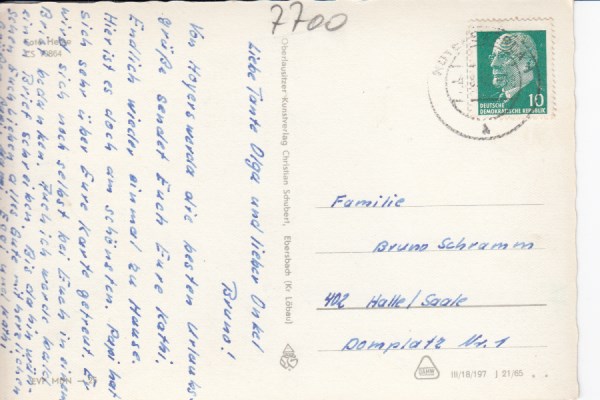 7700
Liebe Tante Olga und lieber Onkel
Bruno!
Von Hoyerswerda die besten Urlaubs-
grüße sendet Euch Eure Kathi.
Endlich wieder einmal zu Hause.
Hier ist es doch am schönsten. Papi hat
sich sehr über Eure Karte gefreut. Er
wird sich noch selbst bei Euch in einem
Brief bedanken. Auch ich werde bald
einen Brief schreiben. Bis dahin
alles Gute mit herzlichen
und Kathi.
Foto: 
Oberlausitzer Kunstverlag Christian Schubert, Ebersbach (Kr Löbau)
DEUTSCHE
DEMOKRATISCHE REPUBLIK
10
Familie
Bruno Schramm
402 Halle/Saale
Domplatz Nr. 1
III/18/197 J 21/65